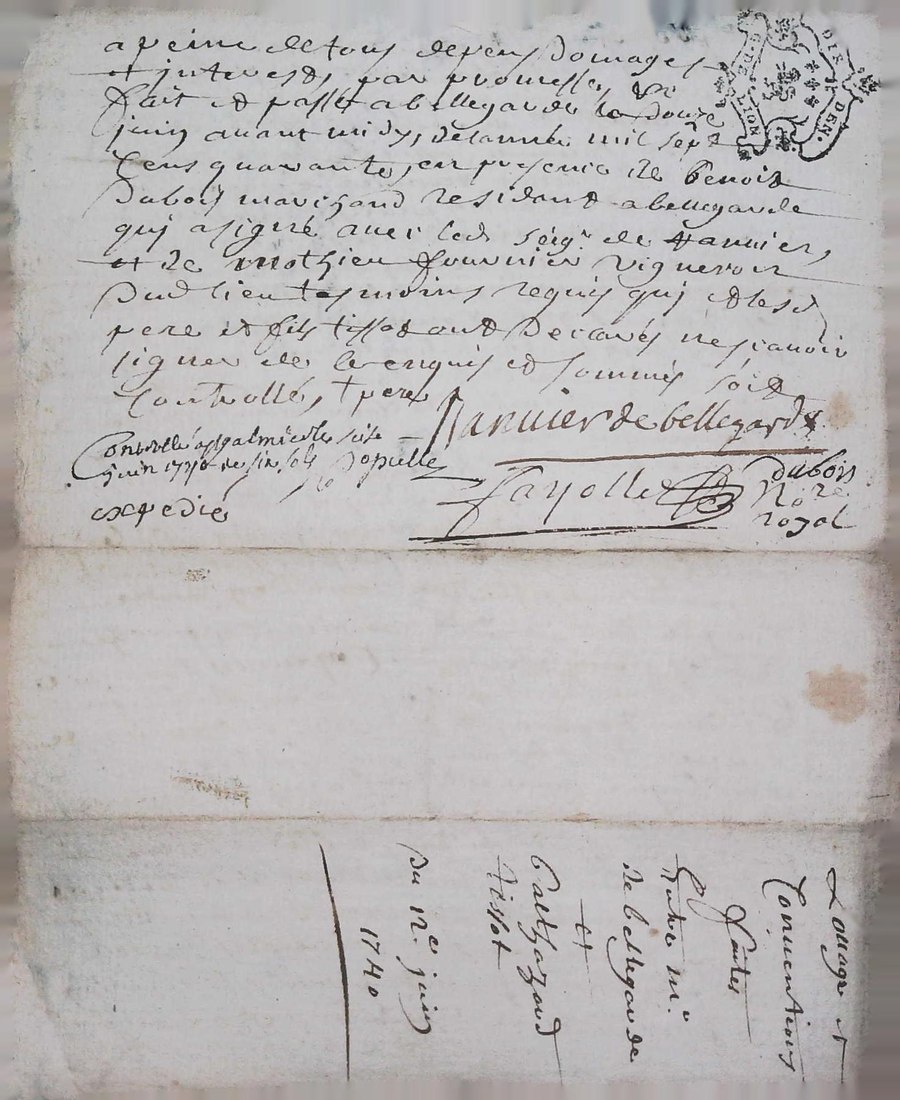 a peine de tous depens domages
et interests, par promesse, &c
fait et passé a bellegarde le douze
juin avant midy, de lannée mil sept
cens quarante, en presence de benoit
Dubois marchand residant a bellegarde
qui a signé avec led seigr de Hannier,
et de mothieu fournier vigneron
dud lieu tesmoins requis qui et lesd
pere et fils tissot ont declarés ne scavoir
signer de ce enquis et sommés soit
Controllé, pere
hannier de bellegarde
Controllé a St galmier le seise
juin 1740 six sols
dubois
fayolle
Nore
royal
expedié
G. DE LYON
DIX DEN.
Louage et
Conventions
faites
Entre mr
de bellegarde
et
balthazard
tissot
Du 12e juin
1740